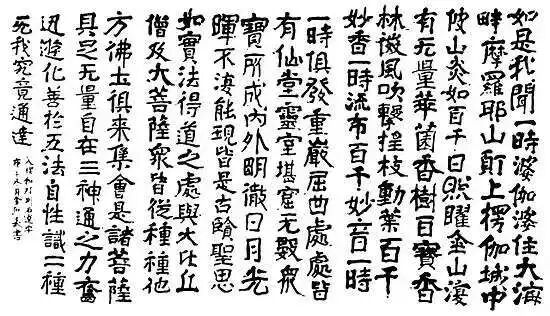 如是我聞一時婆伽婆住大海
畔摩羅耶山頂上楞伽城中
彼山炎如百千日照曜金山復
有无量華園香樹皆寶香
林微風吹擊搖枝動葉百千
妙香一時流布百千妙音一時
一時俱發重巖屈曲處處皆
有仙堂靈室堪窟无數眾
寶所成內外明徹日月光
暉不復能現皆是古賢聖思
如實法得道之處與大比丘
僧及大菩薩眾皆從種種他
方佛土俱來集會是諸菩薩
具足无量自在三神通之力奮
迅遊化善於五法自性識二種
无我究竟通達